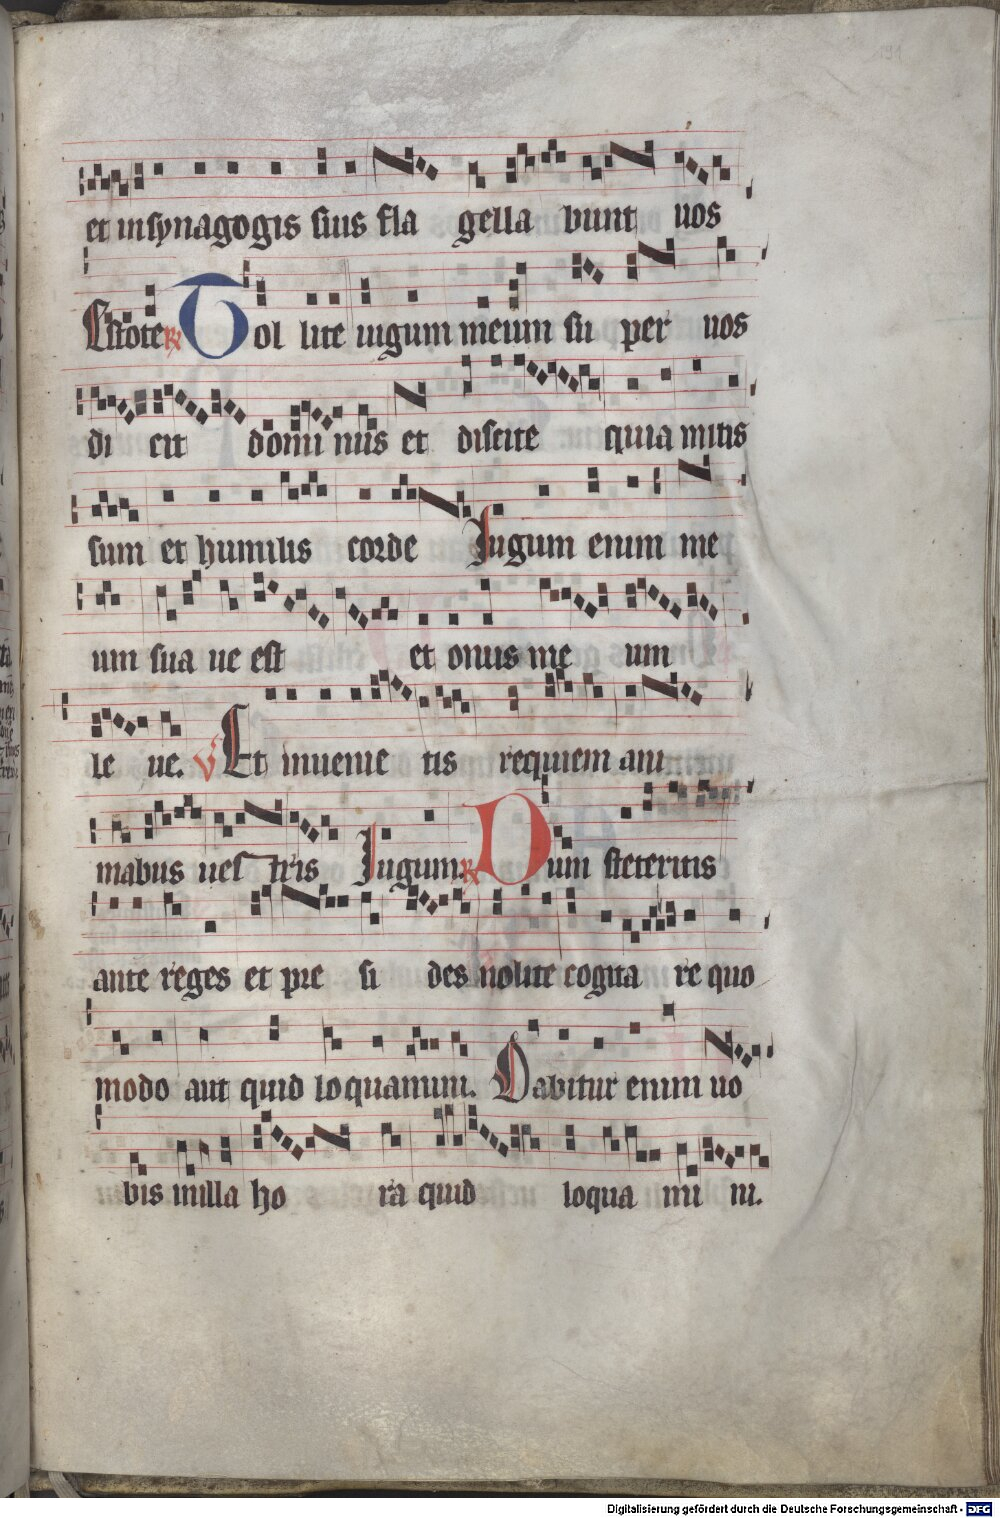 191
et in synagogis suis fla gella bunt uos
Estote R Tol lite iugum meum su per uos
di cit domi nus et discite quia mitis
sum et humilis corde Iugum enim me
um sua ue est et onus me um
le ue. V Et inuenie tis requiem ani
mabus ues tris Iugum. R Dum steteritis
ante reges et pre si des nolite cogita re quo
modo aut quid loquamini. Dabitur enim uo
bis in illa ho ra quid loqua mi ni.
Digitalisierung gefördert durch die Deutsche Forschungsgemeinschaft - DFG